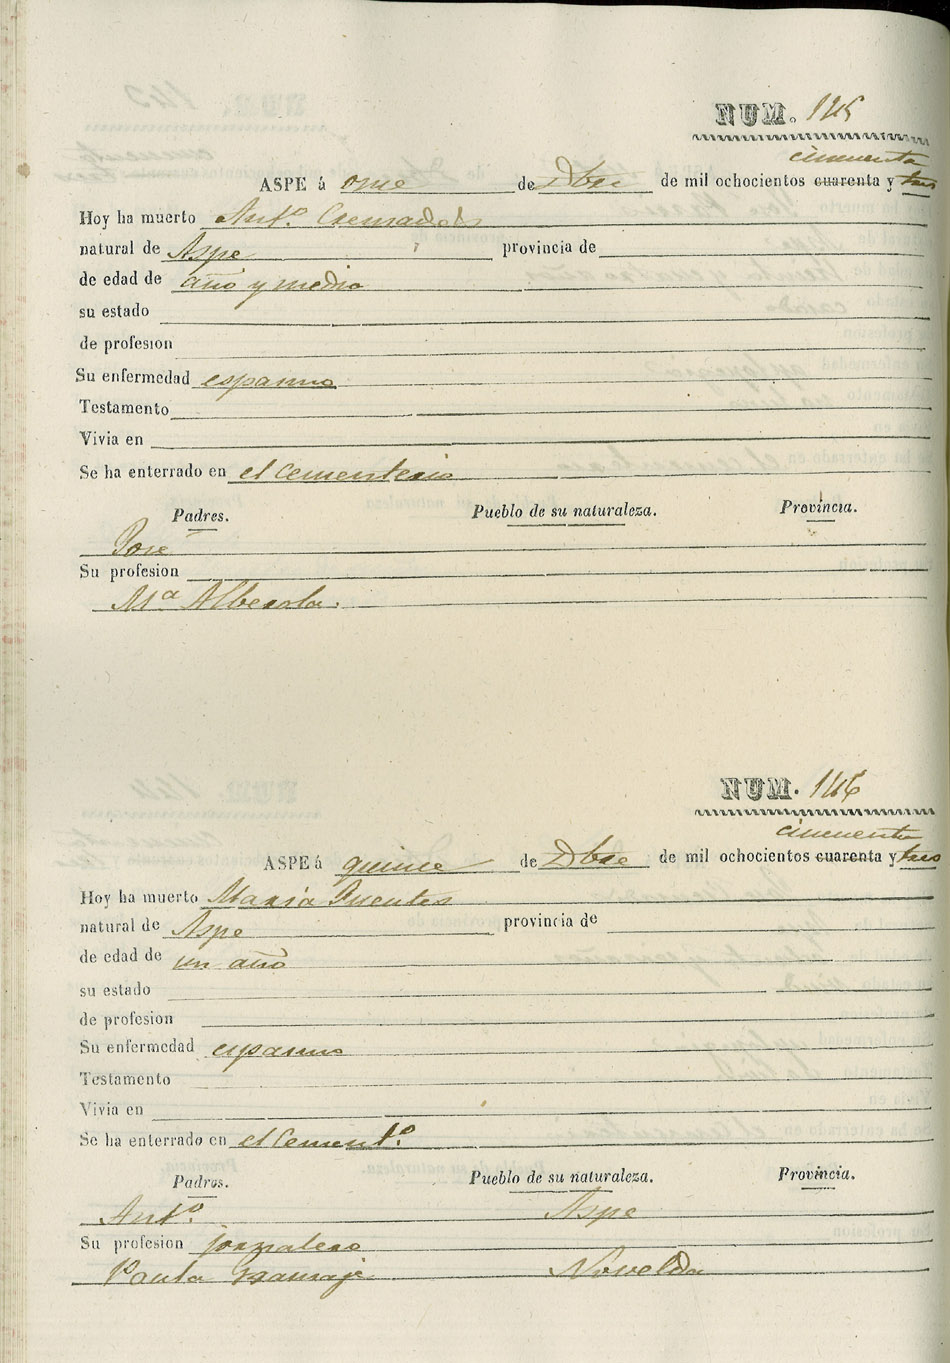 NUM. 145
cincuenta
ASPE á once de Dbre de mil ochocientos cuarenta y tres
Hoy ha muerto Antº. Cremades
natural de Aspe provincia de
de edad de año y medio
su estado
de profesion
Su enfermedad espasmo
Testamento
Vivia en
Se ha enterrado en el Cementerio
Padres. Pueblo de su naturaleza. Provincia.
José
Su profesion
Mª Alberola.
NUM. 146
cincuenta
ASPE á quince de Dbre de mil ochocientos cuarenta y tres
Hoy ha muerto Maria Fuentes
natural de Aspe provincia de
de edad de un año
su estado
de profesion
Su enfermedad espasmo
Testamento
Vivia en
Se ha enterrado en el Cementº.
Padres. Pueblo de su naturaleza. Provincia.
Antº. Aspe
Su profesion jornalero
Paula Novelda